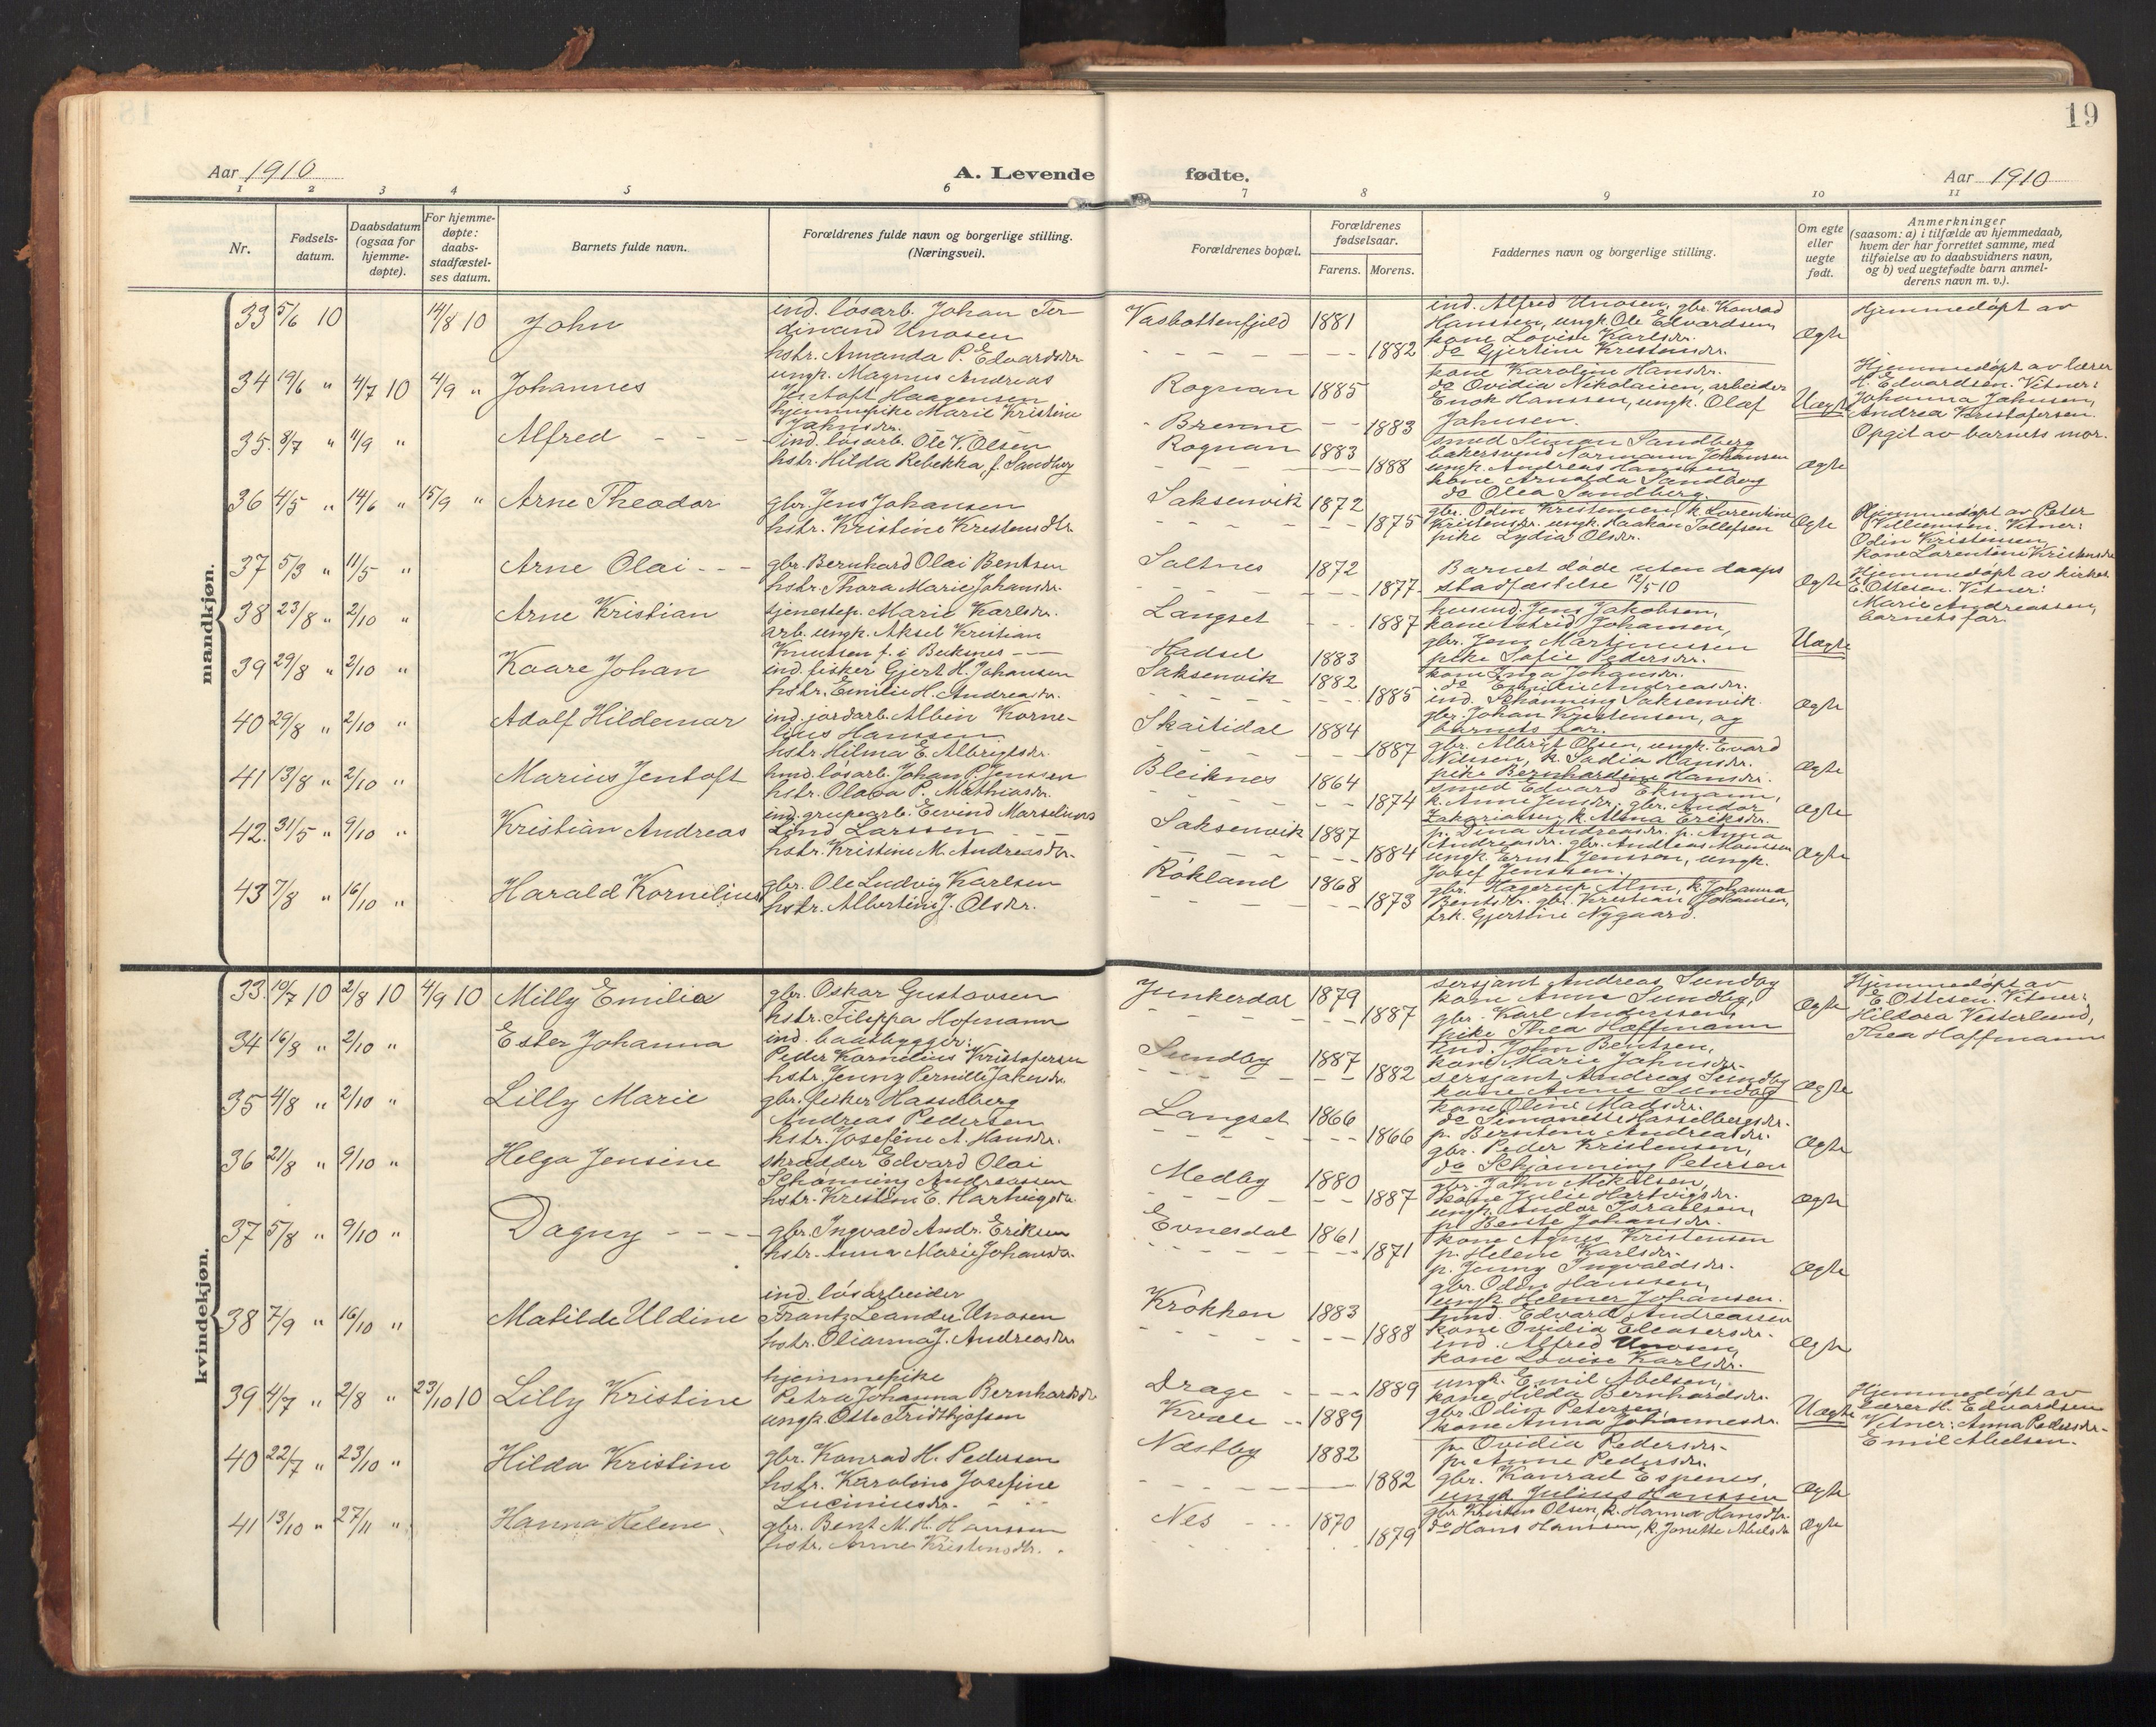 19
Aar 1910
A. Levende
fødte.
Aar 1910
1 2 3 4 5 6 7 8 9 10 11
Nr.
Fødsels-
datum.
Daabsdatum
(ogsaa for
hjemme-
døpte).
For hjemme-
døpte:
daabs-
stadfæstel-
ses datum.
Barnets fulde navn.
Forældrenes fulde navn og borgerlige stilling.
(Næringsvei).
Forældrenes bopæl.
Forældrenes
fødselsaar.
Farens. Morens.
Faddernes navn og borgerlige stilling.
Om egte
eller
uegte
født.
Anmerkninger
(saasom: a) i tilfælde av hjemmedaab,
hvem der har forrettet samme, med
tilføielse av to daabsvidners navn,
og b) ved uegtefødte barn anmel-
derens navn m. v.).
mandkjøn.
33 5/6 10 14/8 10 John
ind. løsarb. Johan Fer-
dinand Unosen
hstr. Amanda P. Edvardsdr.
Vasbottenfjeld 1881
1882
ind. Alfred Unosen, gbr. Konrad
Hanssen, ungk. Ole Edvardsen,
kone Lovise Karlsdr.
do Gjertine Kristensdr.
Ægte
Hjemmedøpt av
34 19/6 " 4/7 10 4/9 " Johannes
ungk. Magnus Andreas
Jentoft Haagensen
hjemmepike Marie Kristine
Jahnsdr.
Rognan 1885
Brenne 1883
kone Karoline Hansdr.
do Ovidia Nikolaisen, arbeider
Enok Hanssen, ungk. Olaf
Jahnsen.
Uægte
Hjemmedøpt av lærer
H. Edvardsen. Vitner:
Johanna Jahnsen,
Andrea Kristofersen.
Opgit av barnets mor.
35. 8/7 " 11/9 " Alfred
ind. løsarb. Ole V. Olsen
hstr. Hilda Rebekka, f. Sandberg
Rognan 1883
1888
smed Simon Sandberg
bakersvend Normann Johansen
ungk. Andreas Hanssen
kone Arnolda Sandberg
do Olea Sandberg.
Ægte
36 4/5 " 14/6 " 15/9 " Arne Theodor
gbr. Jens Johansen
hstr. Kristine Kristensdtr.
Saksenvik 1872
1875
gbr. Odin Kristensen, k. Lorentine
Kristensdr. ungk. Haakon Tollefsen
pike Lydia Olsdr.
Ægte
Hjemmedøpt av Peter
Villumsen. Vitner:
Odin Kristensen
kone Lorentine Kristensdr.
37 5/3 " 11/5 " Arne Olai
gbr. Bernhard Olai Bentsen
hstr. Thora Marie Johansdr.
Saltnes 1872
1877
Barnet døde uten daaps
stadfæstelse 12/5 10
Ægte
Hjemmedøpt av kirkes.
E. Ottesen. Vitner:
Marie Andreassen,
barnets far
38 23/8 " 2/10 " Arne Kristian
tjenestep. Marie Karlsdr.
arb. ungk. Aksel Kristian
Knutsen f. i
Langset 1887
Hadsel 1883
husmd. Jens Jakobsen,
kone Astrid Johansen,
gbr. Jens Martinussen
pike Sofie Pedersdr.
Uægte
39 29/8 " 2/10 " Kaare Johan
ind. fisker Gjert H. Johansen
hstr. Emilie H. Andreasdr.
Saksenvik 1882
1885
kone Inga Johansdr.
do Emilie Andreasdr.
ind. Schønning Saksenvik.
gbr. Johan Kristensen, og
barnets far.
Ægte
40 29/8 " 2/10 " Adolf Hildemar
ind. jordarb. Albin Korne-
lius Hanssen.
hstr. Hilma E. Albrigtsdr.
Skaitidal 1884
1887
gbr. Albrigt Olsen, ungk. Evard
Nilssen, k. Sadia Hansdr.
pike Bernhardine Hansdr.
Ægte
41 13/8 " 2/10 " Marius Jentoft
hmd. løsarb. Johan P. Jenssen
hstr. Olava P. Mathiasdr.
Bleiknes 1864
1874
smed Edvard Ekmann,
k. Anne Jensdr. gbr. Andor
Zakariassen, k. Alma Eriksdr.
Ægte
42. 31/5 " 9/10 " Kristian Andreas
ind. grupearb. Eivind Marselius
Lind Larssen
hstr. Kristine M. Andreasdtr.
Saksenvik 1887
1884
p. Dina Andreasdr. p. Anna
Andreasdr. gbr. Andreas Monssen
ungk. Ernst Jenssen, ungk.
Josef Jenssen.
Ægte
43 7/8 " 16/10 " Harald Kornelius
gbr. Ole Ludvig Karlsen
hstr. Albertine J. Olsdr.
Røkland 1868
1873
gbr. Hagerup Alm, k. Johanna
Bentsdr. gbr. Kristian Johansen,
frk. Gjertine Nygaard.
kvindekjøn.
33. 10/7 10 2/8 10 4/9 10 Milly Emilie
gbr. Oskar Gustavsen
hstr. Filippa Hofmann
Junkerdal 1879
1887
sersjant Andreas Sundby
kone Anne Sundby,
gbr. Karl Anderssen,
pike Thea Hoffmann
Ægte
Hjemmedøpt av
E. Ottesen. Vitner:
Hildora Vesterlund,
Thea Hoffmann
34 16/8 " 2/10 " Ester Johanna
ind. baatbygger:
Peder Kornelius Kristofersen
hstr. Jenny Pernille Jakobsdr.
Sundby 1887
1882
ind. John Bentsen,
kone Marie Jahnsdr.
sersjant Andreas Sundby
kone Anne Sundby
Ægte
35 4/8 " 2/10 " Lilly Marie
gbr. fisker Hasselberg
Andreas Pedersen
hstr. Josefine A. Hansdr.
Langset 1866
1866
kone Oline Madsdr.
do Simonette Hasselbergsdr.
p. Berntine Andreasdr.
gbr. Peder Kristensen,
do Schjønning Petersen
Ægte
36 21/8 " 9/10 " Helga Jensine
skrædder Edvard Olai
Schønning Andreassen
hstr. Kristine E. Hartvigsdr.
Medby 1880
1887
gbr. Jahn Mikalsen,
kone Julie Hartvigsdr.
ungk. Andor Israelsen,
p. Bente Johansdr.
Ægte
37 5/8 " 9/10 " Dagny
gbr. Ingvald Andr. Eriksen
hstr. Anna Marie Johansdr.
Evnesdal 1861
1871
kone Agnes Kristensen
p. Helene Karlsdr.
p. Jenny Ingvaldsdr.
gbr. Odin Hanssen,
ungk. Helmer Johansen.
Ægte
38 7/9 " 16/10 " Matilde Uldine
ind. løsarbeider
Frantz Leander Unosen
hstr. Olianna J. Andreasdr.
Krokken 1883
1888
hmd. Edvard Andreassen
kone Ovidia Eleasersdr.
ind. Alfred Unosen,
kone Lovise Karlsdr.
Ægte
39 4/7 " 2/8 " 23/10 10 Lilly Kristine
hjemmepike
Petra Johanna Bernhardsdr.
ungk. Otto Fridthjofsen
Drage 1889
Kvæle 1889
ungk. Emil Abelsen,
kone Hilda Bernhardsdr.
gbr. Odin Petersen,
kone Anna Johannesdr.
Uægte
Hjemmedøpt av
lærer H. Edvardsen
Vitner: Anna Pedersdr.
Emil Abelsen.
40 22/7 " 23/10 " Hilda Kristine
gbr. Konrad H. Pedersen
hstr. Karoline Josefine
Luciniusdr.
Næstby 1882
1882
p. Ovidia Pedersdr.
p. Anne Pedersdr.
gbr. Konrad Espenes,
ungk. Julius Hanssen
Ægte
41 13/10 " 27/11 " Hanna Helene
gbr. Bent M. H. Hanssen
hstr. Anne Kristensdtr.
Nes 1870
1879
gbr. Kristen Olsen, k. Hanna Hansdtr.
do Hans Hanssen, k. Jonette Abelsdr.
Ægte